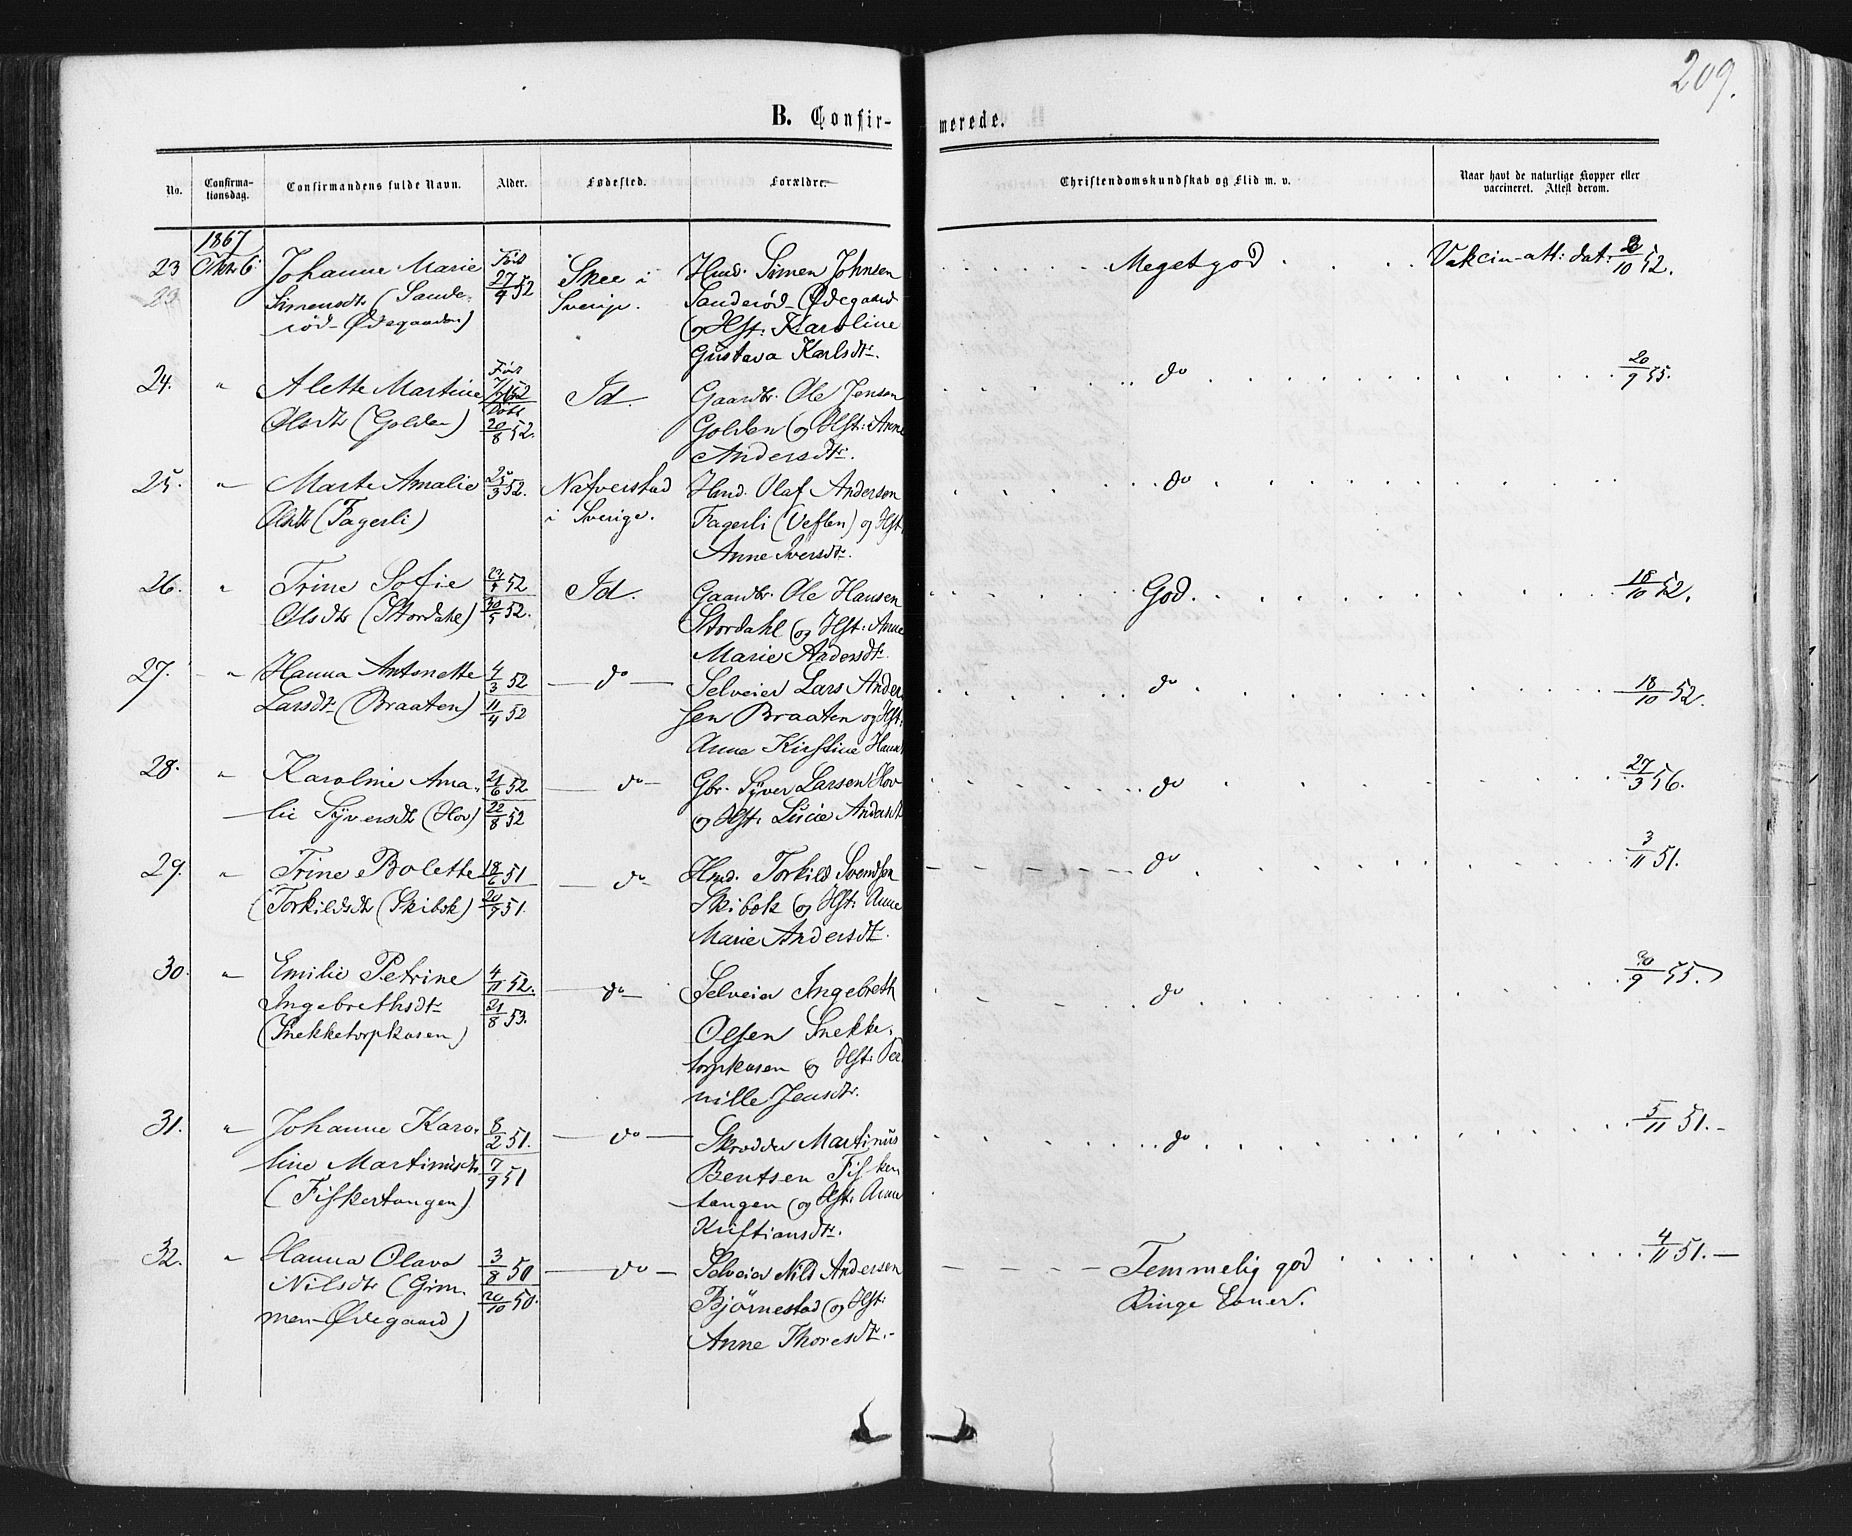 209.
B. Confirmerede.
No. Confirmationsdag. Confirmandens fulde Navn. Alder. Fødested. Forældre. Christendomskundskab og Flid m. v. Naar havt de naturlige Kopper eller vaccineret. Attest derom.
1867
23 Oktr 6. Johanne Marie Født Skee i Hmd. Simen Johnsen Meget god Vakcin-att: dat: 2/10 52.
Simensdtr (Sande- 27/4 52 Sverige. Sanderød-Ødegaard
rød-Ødegaarden) og Hst: Karoline
Gustava Karlsdtr.
24. " Alette Martine Født Id. Gaardbr. Ole Jensen do 20/9 55.
Olsdtr (Golden) 20/8 52. Golden og Hst: Anne
Andersdtr.
25. " Marte Amalie 25/3 52. Nafverstad Hmd. Olaf Andersen do
Olsdtr (Fagerli) i Sverige. Fagerli (Veflen) og Hst:
Anne Iversdtr.
26. " Trine Sofie 52 Id. Gaardbr. Ole Hansen God. 18/10 52.
Olsdtr (Stordahl) 30/5 52. Stordahl og Hst: Anne
Marie Andersdtr.
27. " Hanna Antonette 4/3 52 do Selveier Lars Ander- do 18/10 52.
Larsdtr (Braaten) 11/4 52 sen Braaten og Hst:
Anne Kirstine
28. " Karoline Ama- 21/6 52 do Gbr. Syver Larsen Hov do 27/3 56.
lie Syversdtr (Hov) 22/8 52 og Hst: Lisie
29. " Trine Bolette 18/6 51 do Hmd. Torkild Svendsen do 3/11 51.
(Torkildsdtr (Skibok) 51. Skibok og Hst: Anne
Marie Andersdtr.
30. " Emilie Petrine 4/11 52. do Selveier Ingebreth do 55.
Ingebrethsdtr 21/8 53. Olsen Snekke-
(Snekketorpkasen) torpkasen og Hst: Per-
nille Jensdtr.
31. " Johanne Karo- 8/2 51. do Skrædder Martinus do 5/11 51.
line Martinusdtr 7/9 51 Bentsen Fisker-
(Fiskertangen) tangen og Hst: Anne
Kristiansdtr.
32. " Hanna Olava 3/8 50 do Selveier Nils Andersen Temmelig god 4/11 51.
Nilsdtr (Grim- 20/10 50. Bjørnestad og Hst: Ringe Evner.
men-Ødegaard) Anne Thoresdtr.